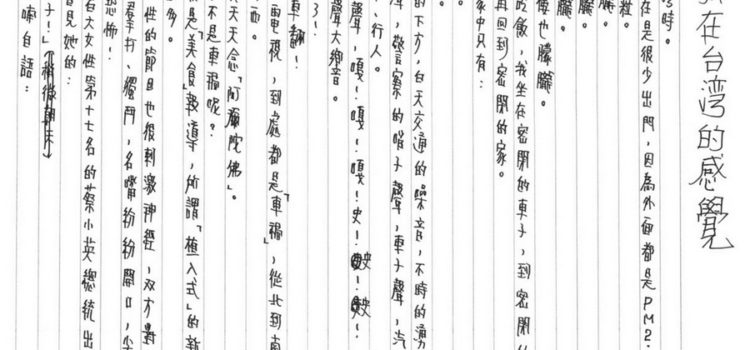 在台湾的感覺
時。
在是很少出門，因為外面都是PM2.
粒。
朧。
朧。
朧。
也朦朧。
吃飯，我坐在密閉的車子，到密閉的
再回到密閉的家。
家中只有：
的下方，白天交通的噪音，不時的湧
聲，警察的哨子聲，車子聲，汽
、行人。
聲，嘎！嘎！嘎！史！
聲大響音。
了！
車禍！
電視，到處都是「車禍」，從北到南
西。
天天念「阿彌陀佛」。
不是車禍呢？
是「美食」報導，所謂「植入式」的新
多。
性的節目也很刺激神經，双方對
群打、獨鬥，名嘴紛紛開口，
恐怖！
百大女性第十七名的蔡小英總統出
見她的：
子！」
喃自語：